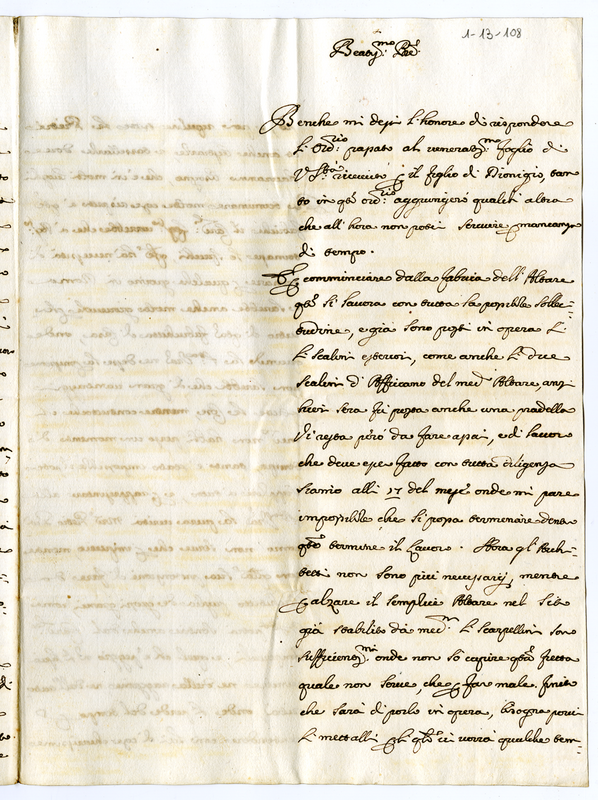 1-13-108
Beatis.mo P.re
Benche mi desi l'honore di rispondere
l'ord.rio papato al veneratis.mo foglio di
V. S.tà ricevuto p il figlio di Dionigio, tan-
to in q.to ord.rio aggiungerò qualch'altra
che all'hora non potei scrivere p mancanza
di tempo.
E comminciare dalla fabrica dell'Altare
q.to si lavora con tutta la possibile solle-
citudine, e già sono posti in opera
li scalini esteriori, come anche li due
scalini d'Afficano del med.o Altare, anzi
hieri sera fù posta anche una pradella
Vi resta però da fare assai, e di lavoro
che deve esse fatto con tutta diligenza
siamo alli 17 del mese onde mi pare
impossibile che si possa terminare dentro
q.to termine il lavoro. Hora gl'Archi-
tetti non sono più necessarij, mentre
p alzare il semplice Altare nel sito
già stabilito dà med.mi li scarpellini sono
sufficientis.mi, onde non sò capire q.ta fretta
quale non serve, che p far male. finito
che sarà di porlo in opera, bisogna porvi
li mettalli p li q.li ci vorrà qualche tem-